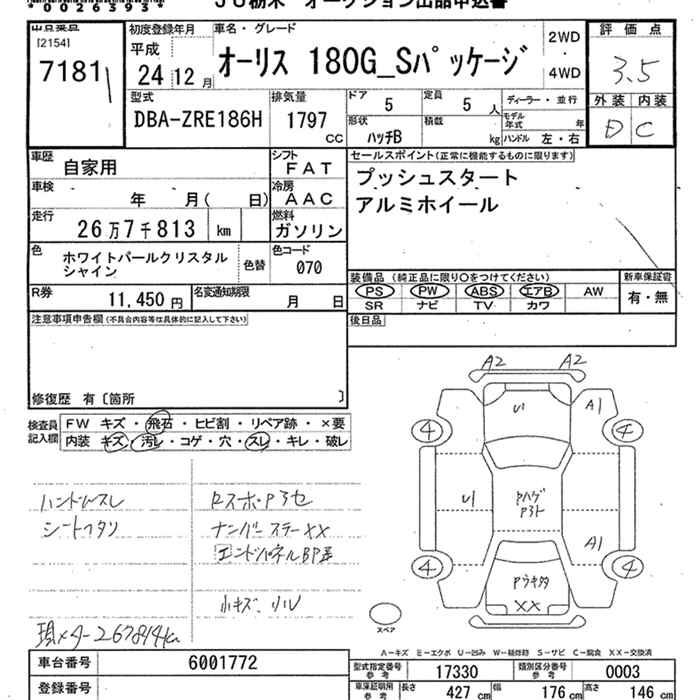 *0026393*
JU栃木 オークション出品申込書
出品番号 初度登録年月 車名・グレード 2WD 評価点
[2154] 平成 ・
7181 24年12月 オーリス 180G_Sパッケージ 4WD 3.5
型式 排気量 ドア 5 定員 5 人 ディーラー・並行 外装 内装
DBA-ZRE186H 1797 cc 形状 ハッチB 積載 kg モデル年式 年 D C
ハンドル 左・右
車歴 自家用 シフト FAT セールスポイント(正常に機能するものに限ります)
車検 年 月( 日) 冷房 AAC プッシュスタート
走行 26万7千813 km 燃料 ガソリン アルミホイール
色 ホワイトパールクリスタル 色替 色コード
シャイン 070
装備品 (純正品に限り○をつけてください) 新車保証書
R券 11,450円 名変通知期限 月 日 PS PW ABS エアB AW 有・無
SR ナビ TV カワ
注意事項申告欄(不具合内容等は具体的に記入して下さい) 後日品
修復歴 有〔箇所 〕
検査員 FW キズ・飛石・ヒビ割・リペア跡・×要
記入欄 内装 キズ・汚レ・コゲ・穴・スレ・キレ・破レ
A2 A2
U1 A1
4 4
ハンドルスレ
シートヘタリ
ナンバーステーXX
U1 Pハゲ
A1
4 4
XX
小キズ、
現メーター267814km
スペア
A-キズ E-エクボ U-凹み W-補修跡 S-サビ C-腐食 XX-交換済
車台番号 6001772 型式指定番号 参考 17330 類別区分番号 参考 0003
登録番号 車庫証明用 参考 長さ 427 cm 幅 176 cm 高さ 146 cm